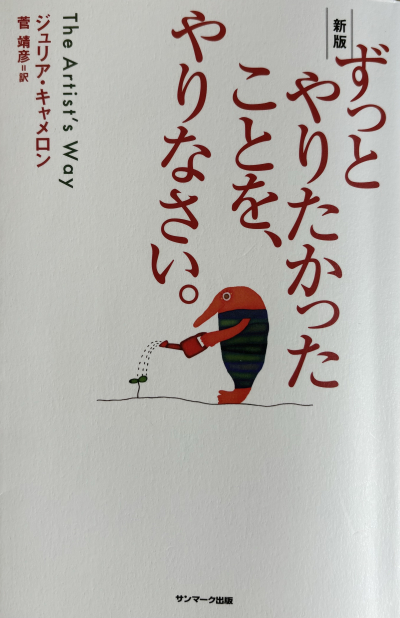 新版
ずっと
やりたかった
ことを、
やりなさい。
The Artist's Way
ジュリア・キャメロン
菅 靖彦=訳
サンマーク出版